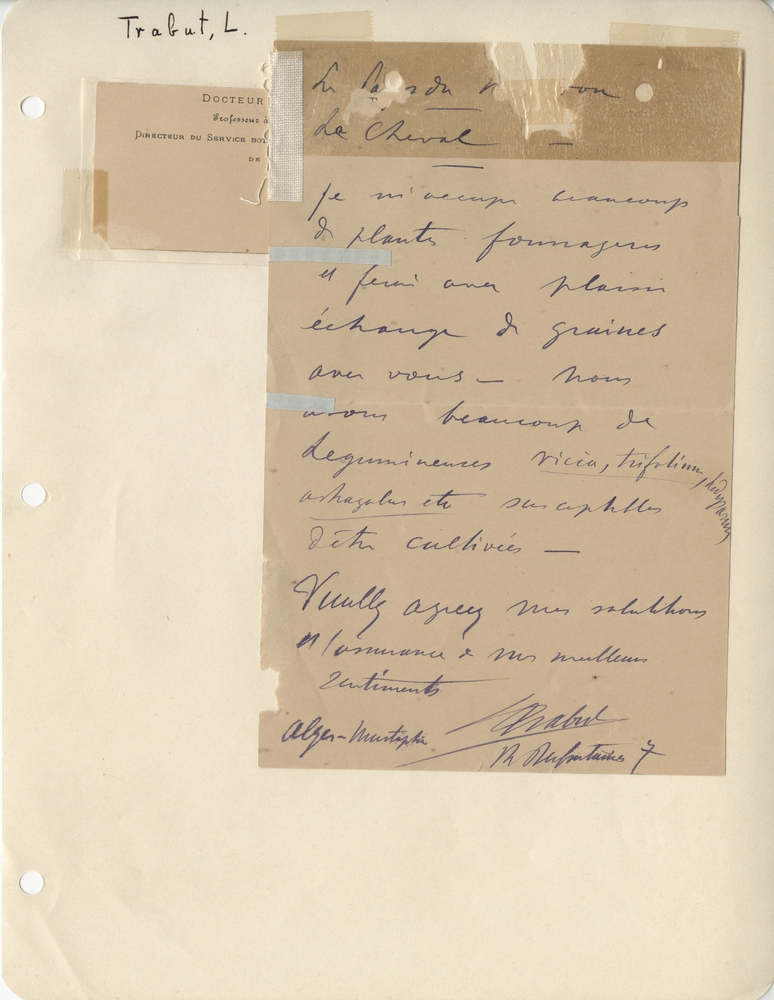 Trabut, L.
DOCTEUR
Professeur à
DIRECTEUR DU SERVICE BO
DE
Le
Le Cheval —
Je m'occupe beaucoup
de plantes fourrageres
et ferai avec plaisir
échange de graines
avec vous — Nous
avons beaucoup de
Legumineuses vicia, trifolium,
astragalus etc susceptibles
d'etre cultivées —
Veuillez agreez mes salutations
et l'assurance de mes meilleurs
Sentiments
LTrabut
Alger-Mustapha
R Desfontaines 7